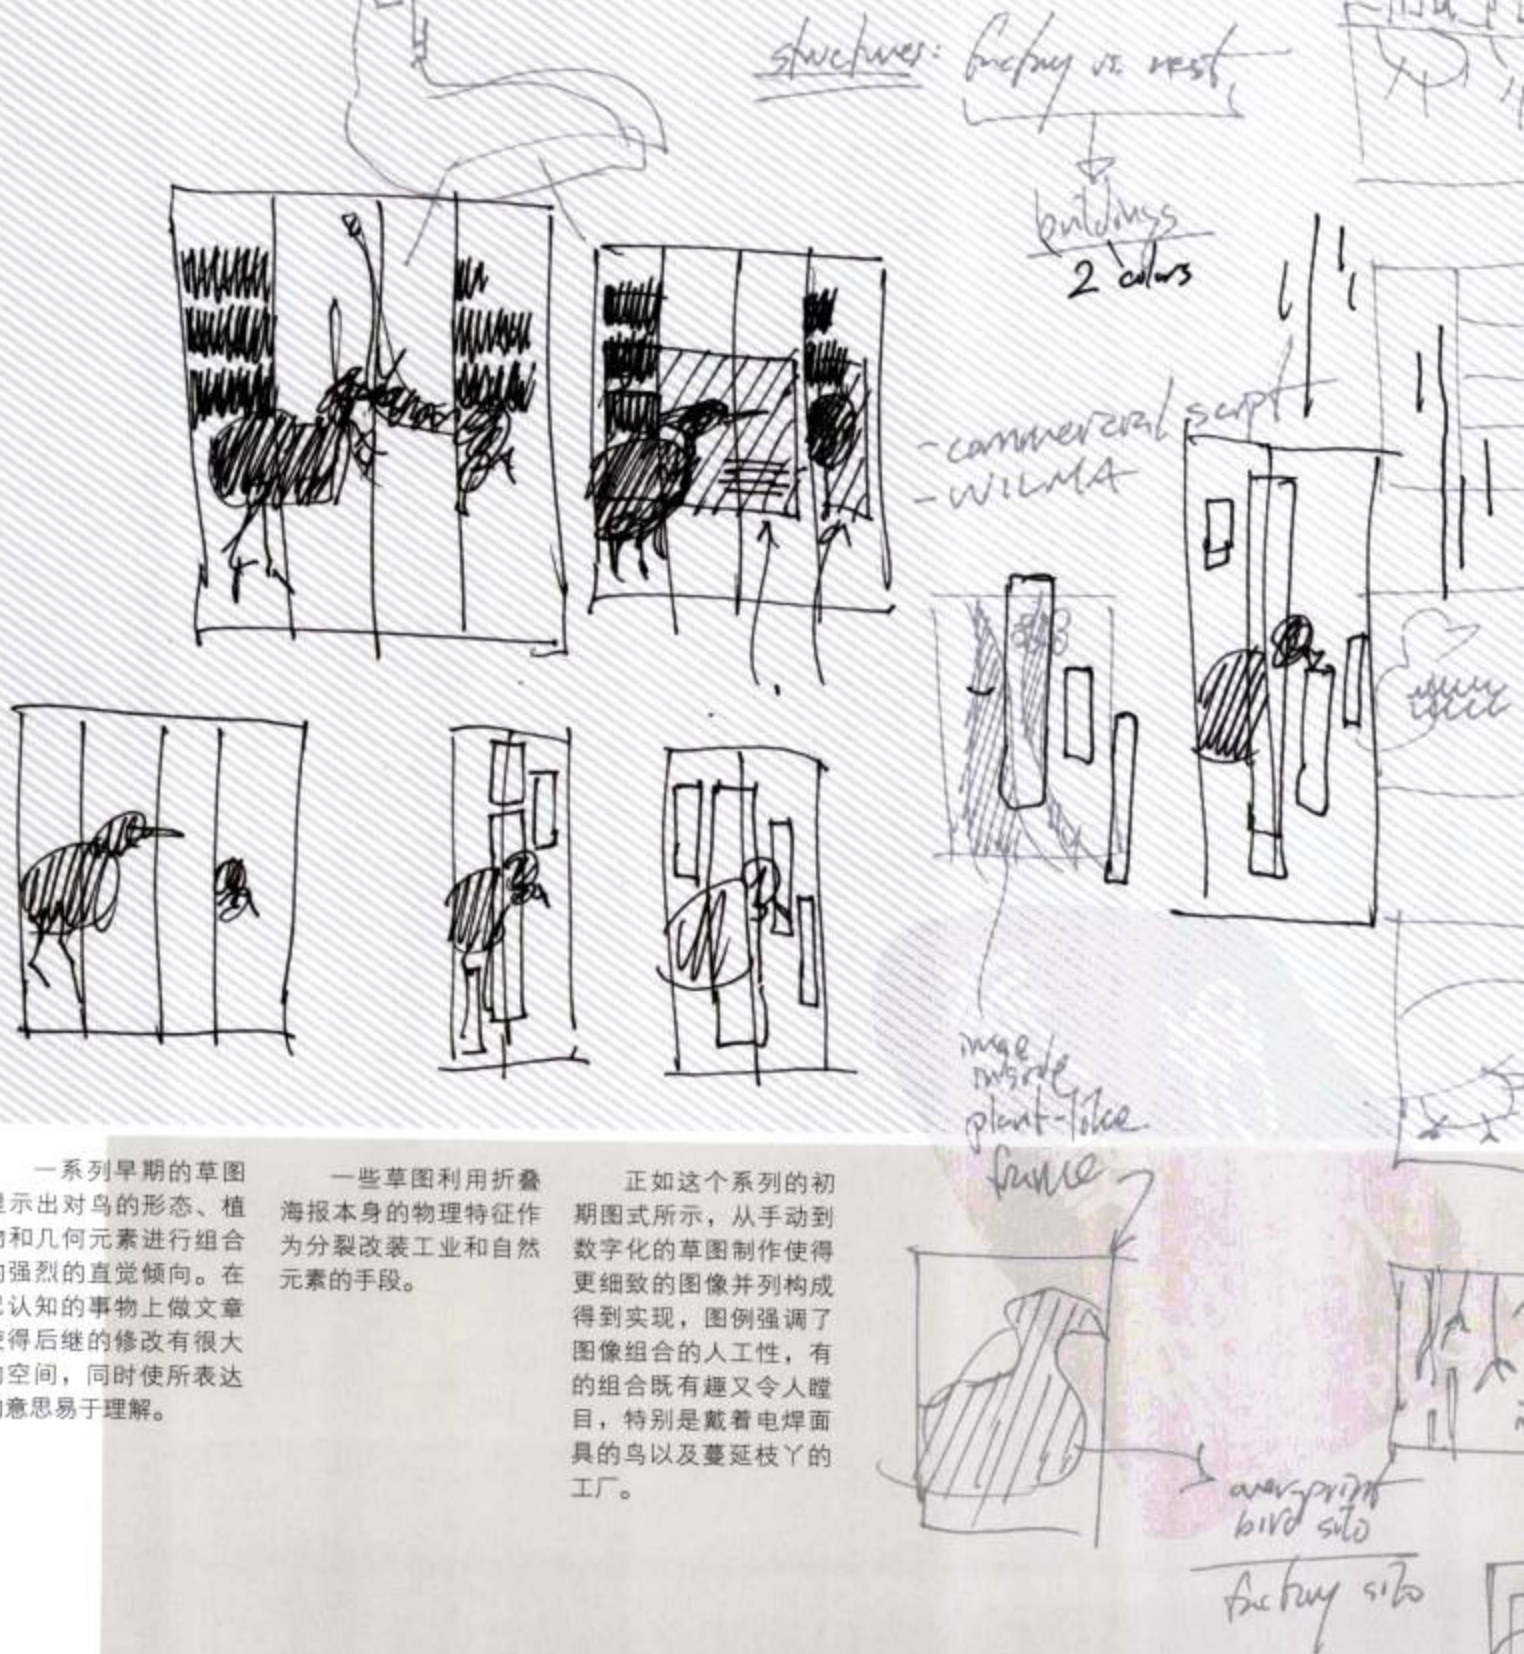 structures: factory vs. nest
buildings
2 colors
- commercial script
- WILMA
image
inside
plant-like
frame
一系列早期的草图
显示出对鸟的形态、植
物和几何元素进行组合
的强烈的直觉倾向。在
已认知的事物上做文章
使得后继的修改有很大
的空间，同时使所表达
的意思易于理解。
一些草图利用折叠
海报本身的物理特征作
为分裂改装工业和自然
元素的手段。
正如这个系列的初
期图式所示，从手动到
数字化的草图制作使得
更细致的图像并列构成
得到实现，图例强调了
图像组合的人工性，有
的组合既有趣又令人瞠
目，特别是戴着电焊面
具的鸟以及蔓延枝丫的
工厂。
overprint
bird silo
factory silo